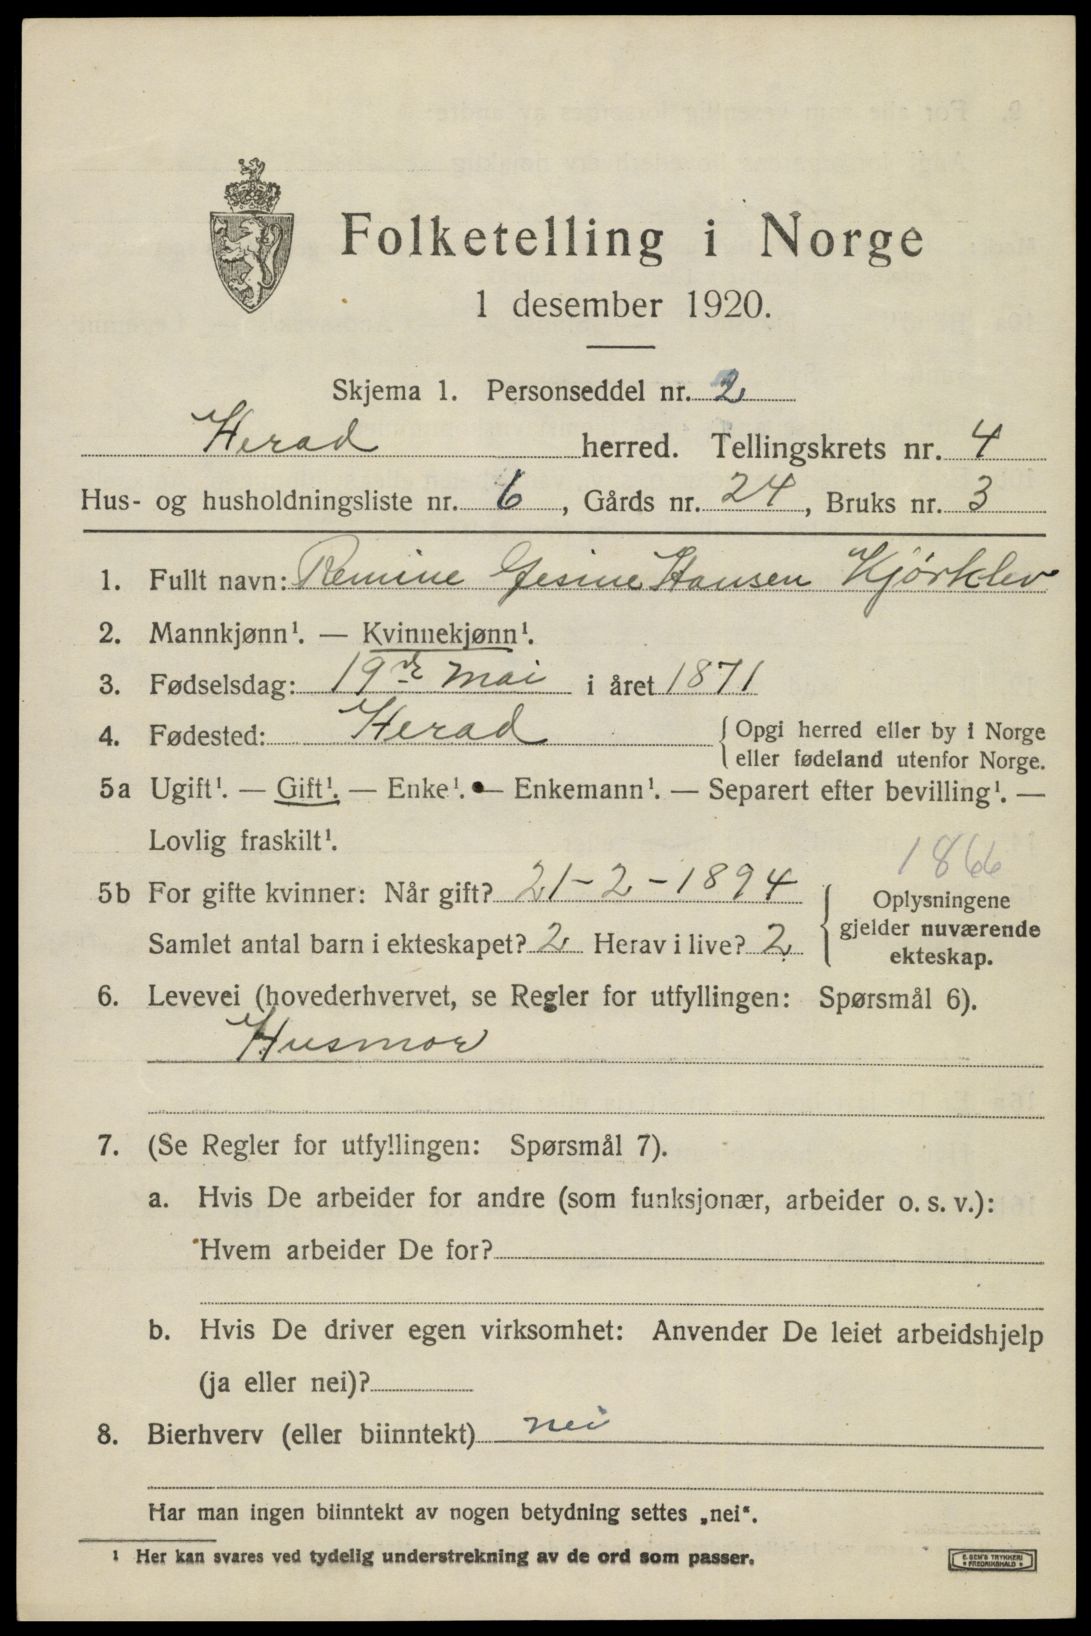 Folketelling i Norge
1 desember 1920.
Skjema 1. Personseddel nr. 2
Herad herred. Tellingskrets nr. 4
Hus- og husholdningsliste nr. 6, Gårds nr. 24, Bruks nr. 3
1. Fullt navn: Remine Gesine Hansen Kjörklev
2. Mannkjønn¹. — Kvinnekjønn¹.
3. Fødselsdag: 19de mai i året 1871
4. Fødested: Herad { Opgi herred eller by i Norge
eller fødeland utenfor Norge.
5a Ugift¹. — Gift¹. — Enke¹. — Enkemann¹. — Separert efter bevilling¹. —
Lovlig fraskilt¹.
1866
5b For gifte kvinner: Når gift? 21-2-1894 { Oplysningene
gjelder nuværende
ekteskap.
Samlet antal barn i ekteskapet? 2 Herav i live? 2
6. Levevei (hovederhvervet, se Regler for utfyllingen: Spørsmål 6).
Husmor
7. (Se Regler for utfyllingen: Spørsmål 7).
a. Hvis De arbeider for andre (som funksjonær, arbeider o. s. v.):
Hvem arbeider De for?
b. Hvis De driver egen virksomhet: Anvender De leiet arbeidshjelp
(ja eller nei)?
8. Bierhverv (eller biinntekt) nei
Har man ingen biinntekt av nogen betydning settes „nei“.
¹ Her kan svares ved tydelig understrekning av de ord som passer.
E. SEM'S TRYKKERI
FREDRIKSHALD